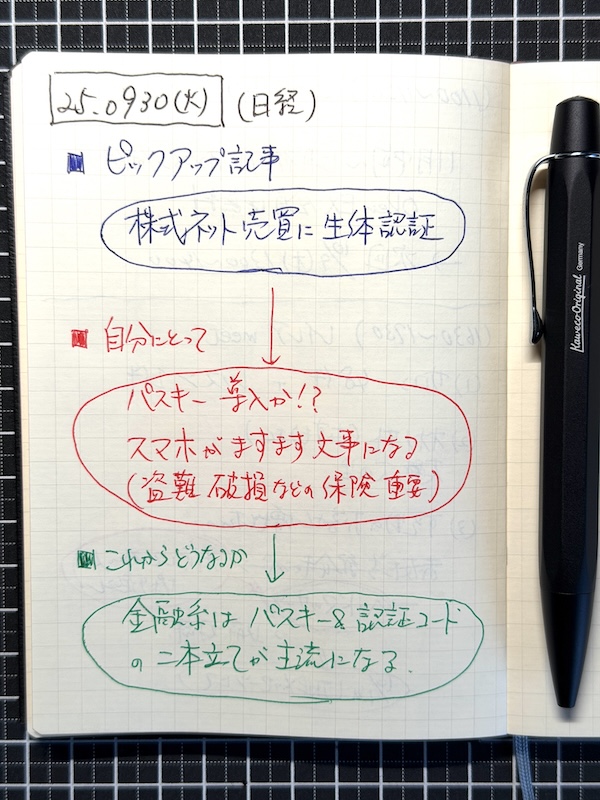 25.0930(火) (日経)
■ ピックアップ記事
株式ネット売買に生体認証
■ 自分にとって
パスキー導入か!?
スマホがますます大事になる
(盗難 破損などの保険 重要)
■ これからどうなるか
金融系は パスキー& 認証コード
の二本立てが主流になる.
Kaweco-Original Germany